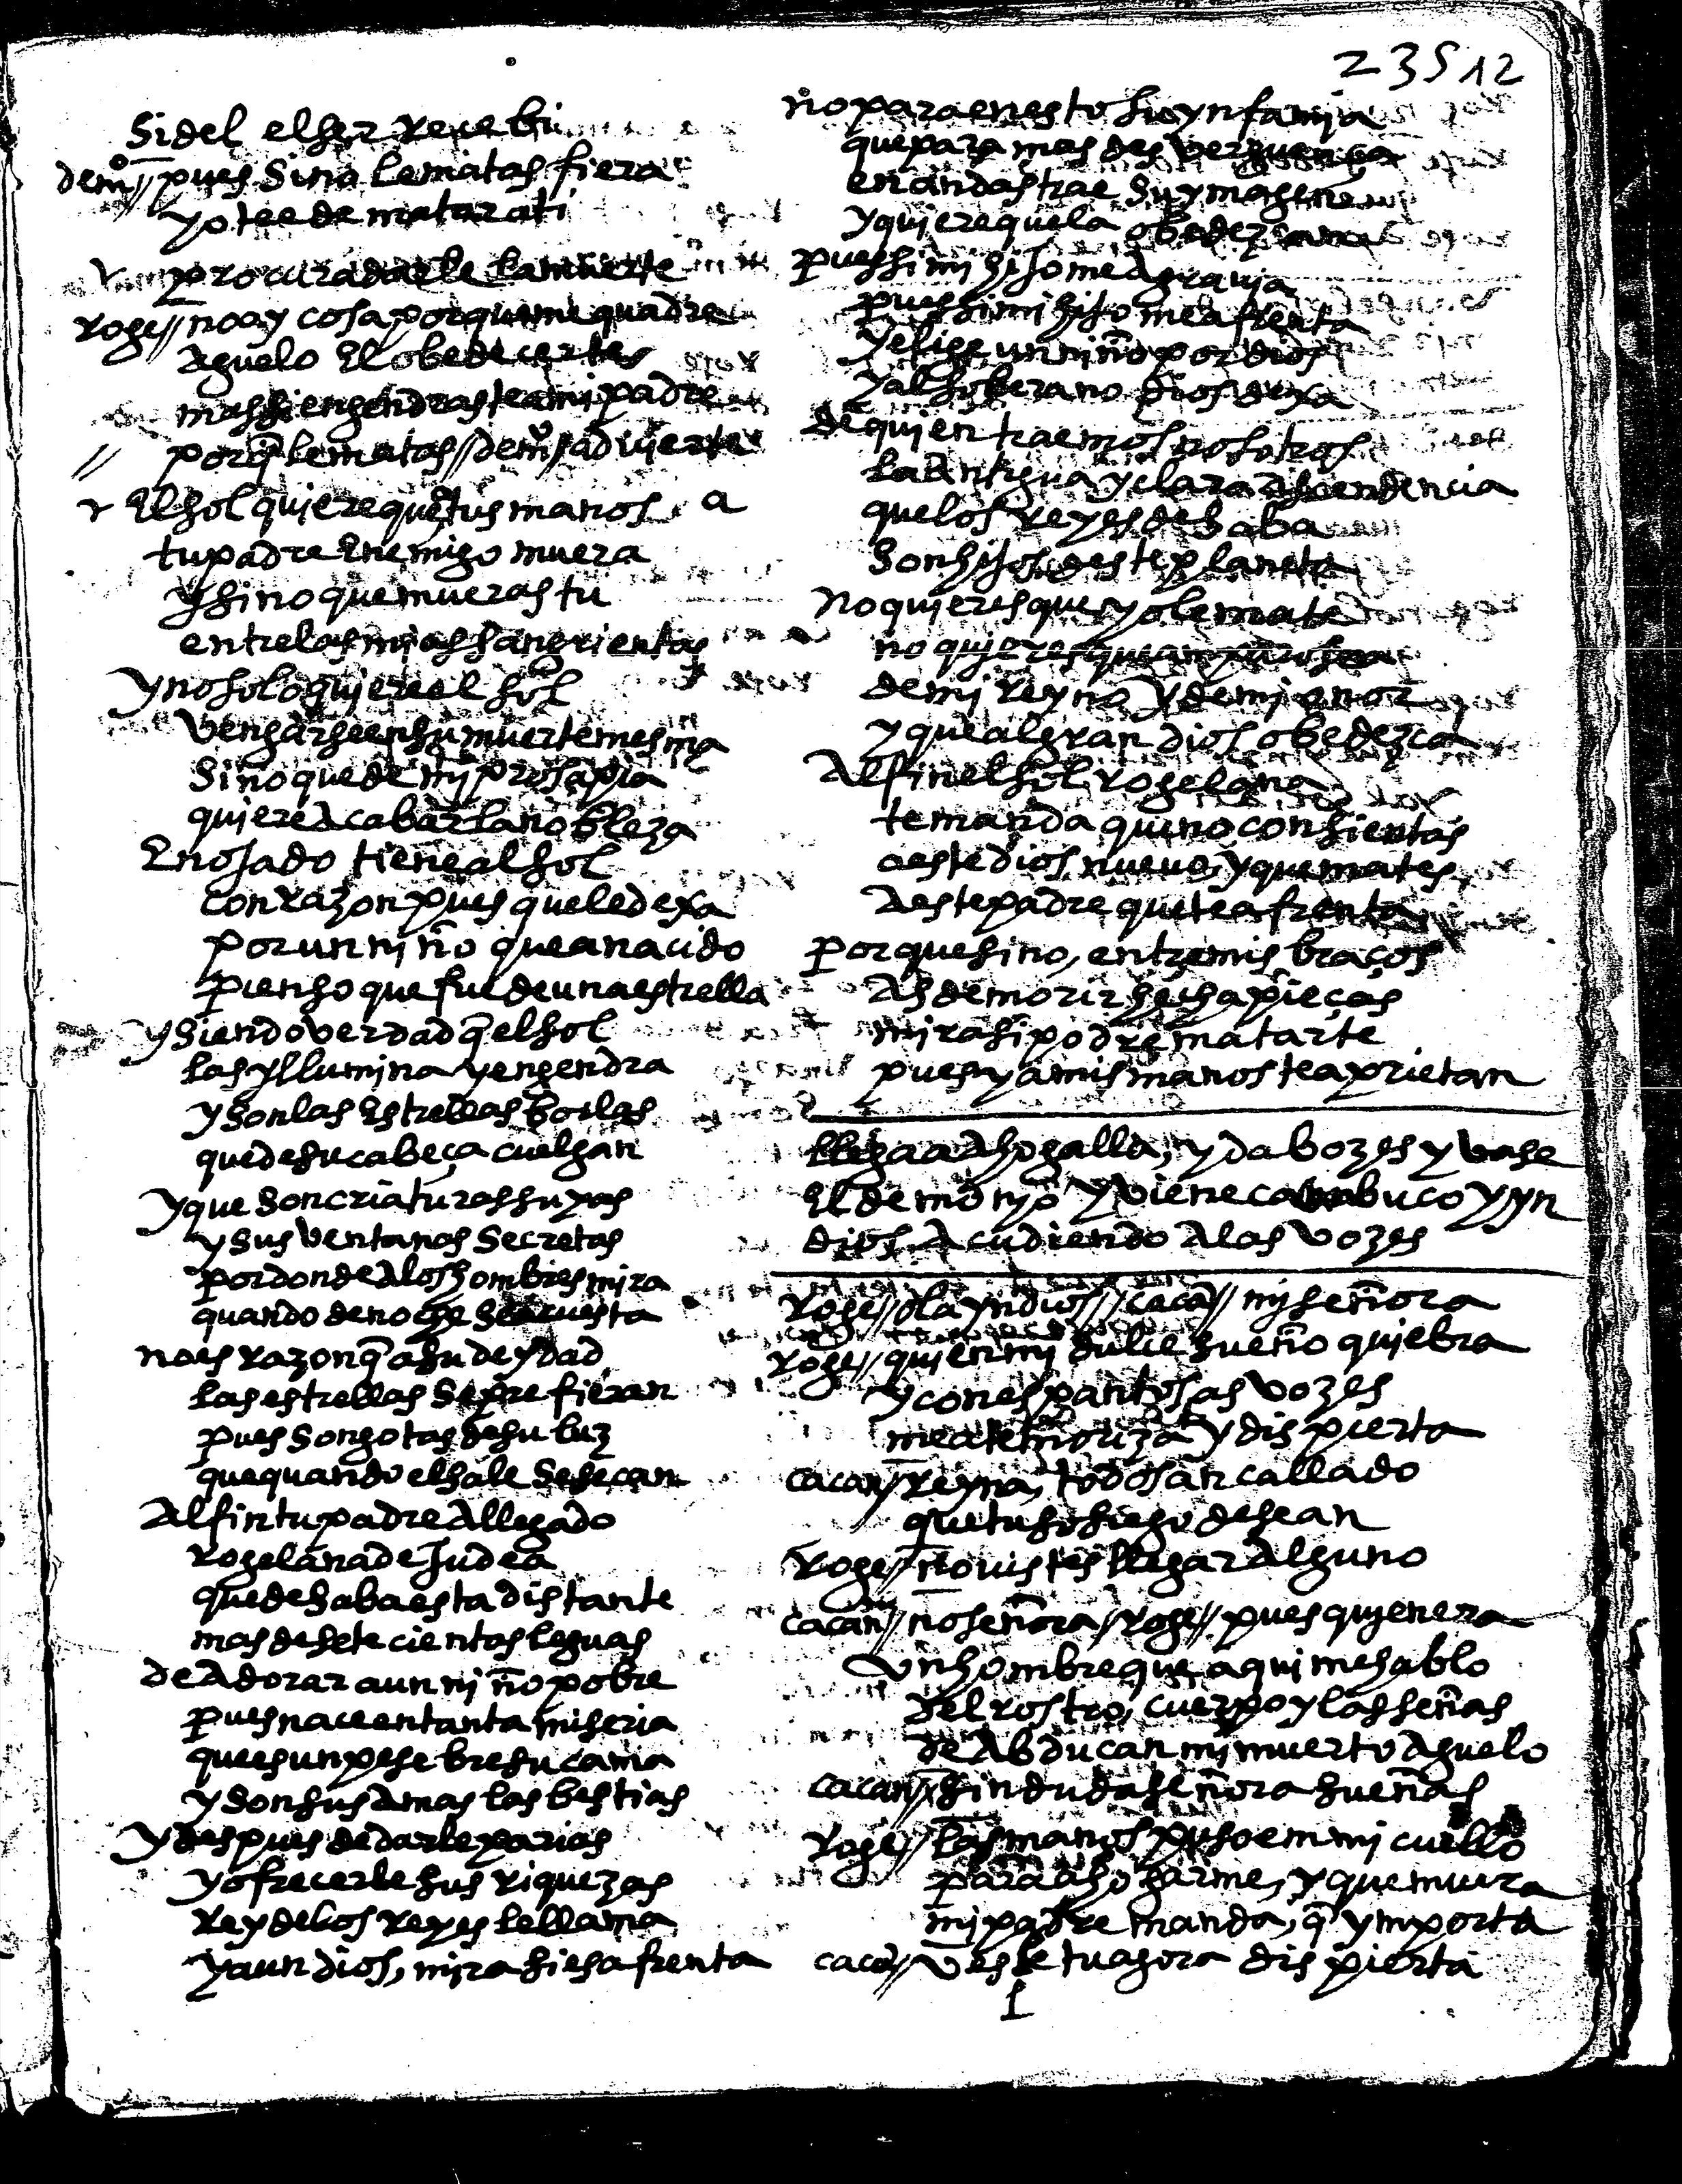 23512
Si del el ser recebi
demo// pues Sino le matas fiera
yo te e de matar a ti
procura darle la muerte
roge// no ay cosa porque me quadre
aguelo El obedecerte
mas si engendraste a mi padre
porq̃ le matas //demo// advierte
El sol quiere que tus manos a
tu padre Enemigo muera
y sino que mueras tu
entre las mias sangrientas
y no solo quiere el sol
vengarse en su muerte mesma
Sino que de mi prosapia
quiere Acabar la nobleza
Enojado tiene al sol
con razon pues que le dexa
por un niño que a nacido
pienso que fue de una estrella
y Siendo verdad q̃ el sol
las yllumina y engendra
y Son las Estrellas borlas
que de su cabeça cuelgan
y que Son criaturas suyas
y Sus ventanas Secretas
por donde A los hombres mira
quando de noche Se acuesta
no es razon q̃ a su deydad
las estrellas Se prefieran
pues Son gotas de su luz
que quando el sale Se secan
Al fin tu padre A llegado
rogelana de Judea
que de Saba esta distante
mas de sete cientas leguas
de Adorar a un niño pobre
pues nace en tanta miseria
que es un pesebre su cama
y Son sus Amas las bestias
y despues de darle parias
y ofrecerle sus riquezas
Rey de los Reyes le llama
y aun dios, mira si es afrenta
no para en esto su ynfamia
que para mas desverguença
en andas trae Su ymagen
y quiere que la obedezcan
pues si mi hijo me Agravia
pues si mi hijo me afrenta
y elige un niño por dios
y al soberano dios dexa
de quien traemos nosotros
la Antigua y clara Ascendencia
que los reyes de Saba
Son hijos deste planeta
No quieres que yo le mate
no quieres que
de mi reyno y de mi onor
y que al gran dios obedezca
Al fin el sol rogelana
te manda que no consientas
a este dios nuevo, y que mates
A este padre que te afrenta
porque sino, entre mis braços
As de morir hecha pieças
mira si podre matarte
pues ya mis manos te aprietan
llega a Ahogalla, y da bozes y vase
El demonyo y viene cacambuco y yn
dios Acudiendo A las vozes
Roge// ola yndios // cacā// mi señora
Roge// quien mi dulce sueño quiebra
y con espantosas vozes
me atemoriza y dispierta
cacan// Reyna, todos an callado
que tu sosiego desean
Roge// no vistes llegar Alguno
cacan// no señora //roge// pues quien era
Un hombre que aqui me hablo
del rostro, cuerpo y las señas
de Abducan mi muerto Aguelo
cacan// sin duda señora sueñas
Roge// las manos puso em mi cuello
para ahogarme, y que muera
mi padre manda, q̃ ymporta
cacā// ves le tu agora dispierta